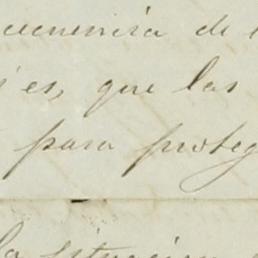 cuencia de l
es, que las
para proteg
la situacion